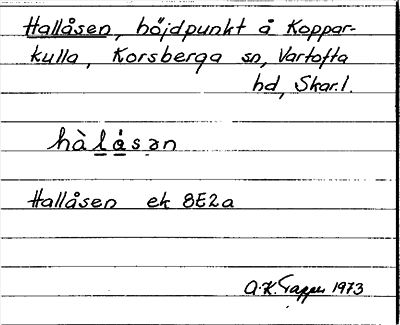 Hallåsen, höjdpunkt å Koppar-
kulla, Korsberga sn, Vartofta
hd, Skar.l.
hàlåsən
Hallåsen ek 8E2a
A.K. Tapper 1973